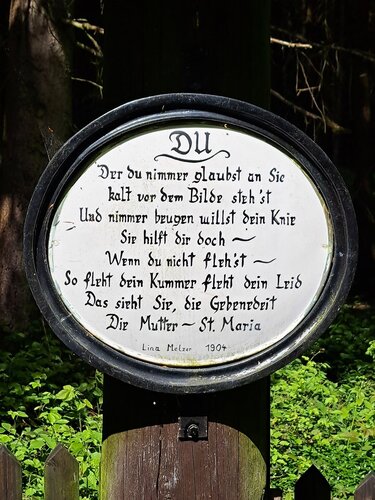 DU
Der du nimmer glaubst an Sie
kalt vor dem Bilde steh'st
Und nimmer beugen willst dein Knie
Sie hilft dir doch ~
Wenn du nicht fleh'st ~
So fleht dein Kummer fleht dein Leid
Das sieht Sie, die Gebenedeit
Die Mutter ~ St. Maria
Lina Melzer 1904